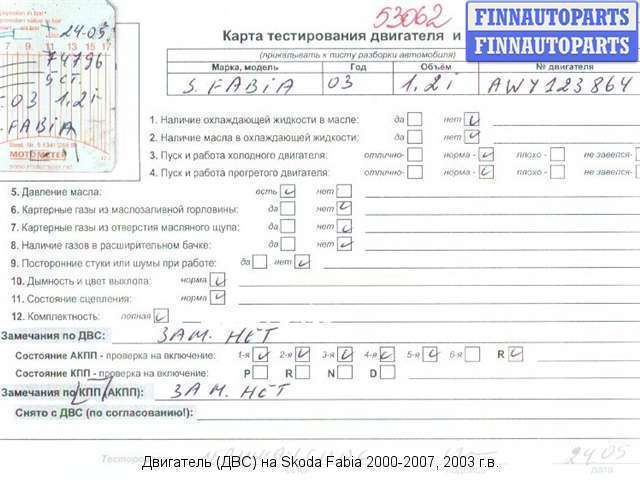 53062
FINNAUTOPARTS
FINNAUTOPARTS
24.05
7 9 11 13 15 17
74796
5 ст.
03 1.2i
FABIA
MOTOMETER
Карта тестирования двигателя и
(прикалывать к листу разборки автомобиля)
Марка, модель Год Объём № двигателя
S. FABIA 03 1.2i AWY123864
1. Наличие охлаждающей жидкости в масле: да нет
2. Наличие масла в охлаждающей жидкости: да нет
3. Пуск и работа холодного двигателя: отлично- норма - плохо - не завелся-
4. Пуск и работа прогретого двигателя: отлично- норма - плохо - не завелся-
5. Давление масла: есть нет
6. Картерные газы из маслозаливной горловины: да нет
7. Картерные газы из отверстия масляного щупа: да нет
8. Наличие газов в расширительном бачке: да нет
9. Посторонние стуки или шумы при работе: да нет
10. Дымность и цвет выхлопа: норма
11. Состояние сцепления: норма
12. Комплектность: полная
Замечания по ДВС: ЗАМ. НЕТ
Состояние АКПП - проверка на включение: 1-я 2-я 3-я 4-я 5-я 6-я R
Состояние КПП - проверка на включение: P R N D
Замечания по КПП (АКПП): ЗАМ. НЕТ
Снято с ДВС (по согласованию!):
24 05
Двигатель (ДВС) на Skoda Fabia 2000-2007, 2003 г.в.